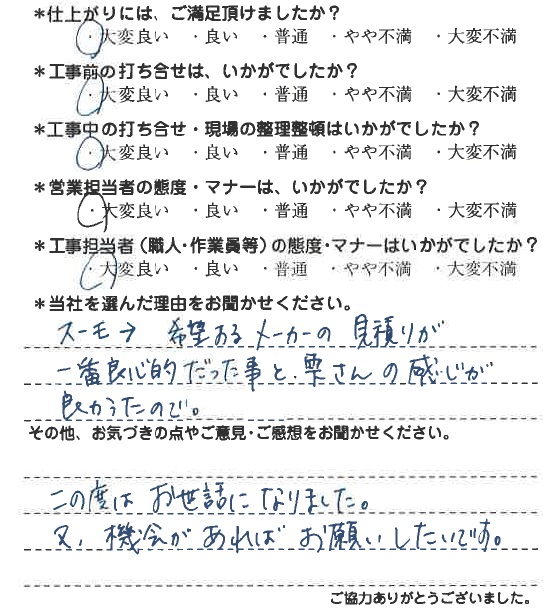 *仕上がりには、ご満足頂けましたか？
・大変良い ・良い ・普通 ・やや不満 ・大変不満
*工事前の打ち合せは、いかがでしたか？
・大変良い ・良い ・普通 ・やや不満 ・大変不満
*工事中の打ち合せ・現場の整理整頓はいかがでしたか？
・大変良い ・良い ・普通 ・やや不満 ・大変不満
*営業担当者の態度・マナーは、いかがでしたか？
・大変良い ・良い ・普通 ・やや不満 ・大変不満
*工事担当者（職人・作業員等）の態度・マナーはいかがでしたか？
・大変良い ・良い ・普通 ・やや不満 ・大変不満
*当社を選んだ理由をお聞かせください。
スーモ→ 希望あるメーカーの 見積りが
一番良心的だった事と、栗さんの感じが
良かったので。
その他、お気づきの点やご意見・ご感想をお聞かせください。
この度は お世話になりました。
又、機会があれば お願いしたいです。
ご協力ありがとうございました。